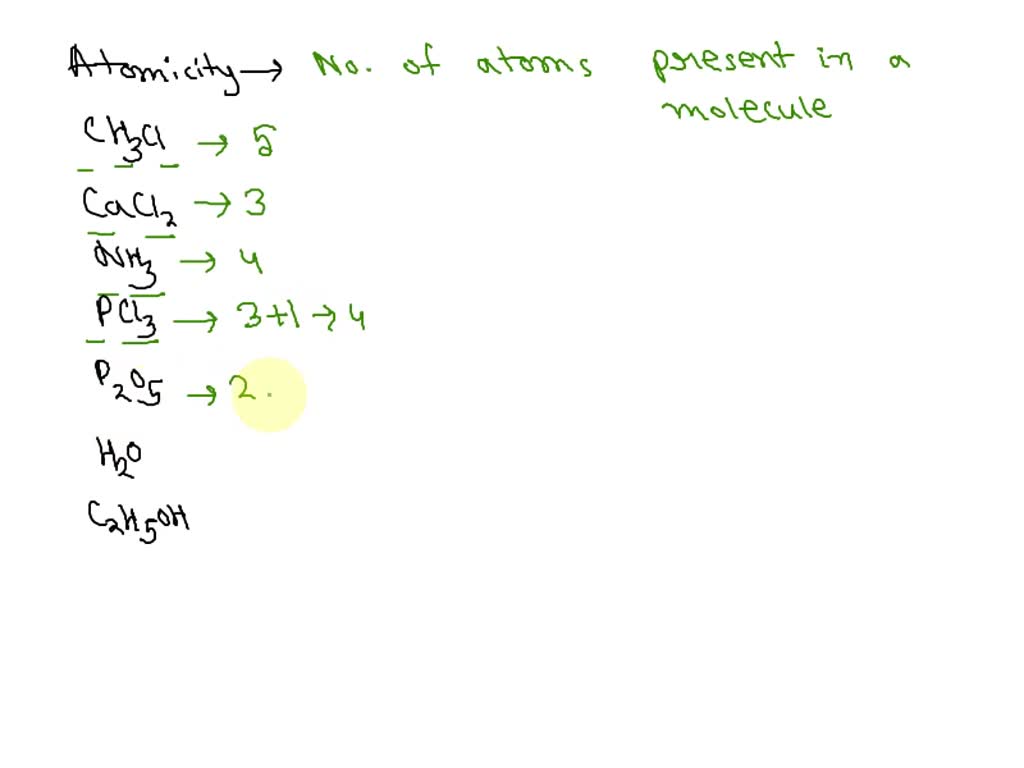 Atomicity → No. of atoms present in a
molecule
CH3Cl → 5
CaCl2 → 3
NH3 → 4
PCl3 → 3+1 → 4
P2O5 → 2.
H2O
C2H5OH